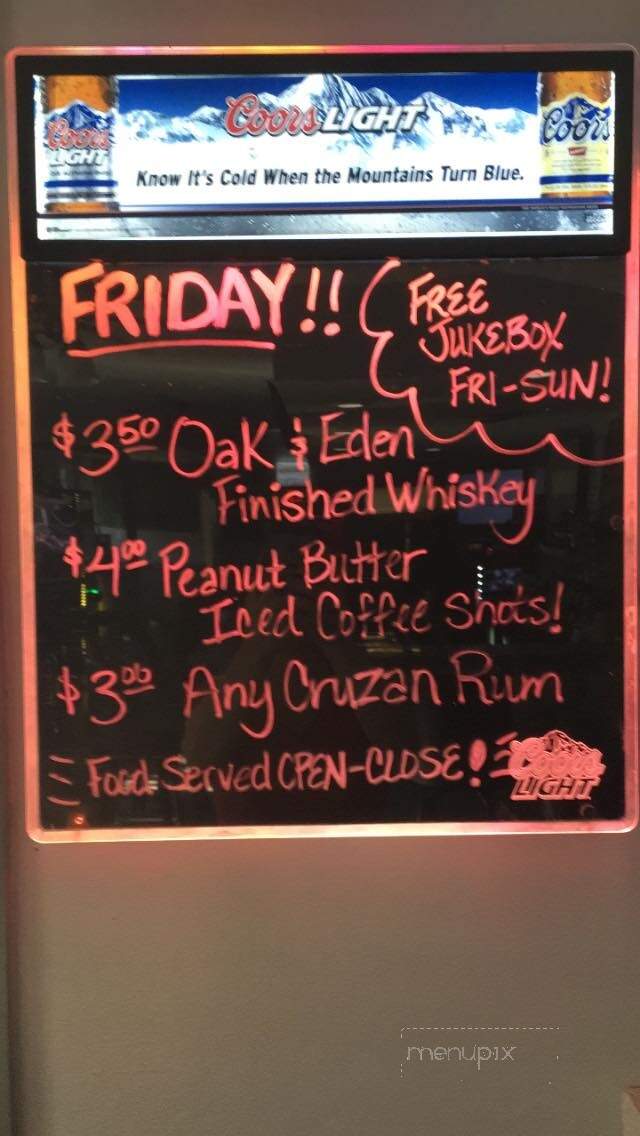 Coors LIGHT
Coors
LIGHT
Coors
Know It's Cold When the Mountains Turn Blue.
FRIDAY!!
FREE
JUKEBOX
FRI-SUN!
$3.50 Oak & Eden
Finished Whiskey
$4.00 Peanut Butter
Iced Coffee Shots!
$3.00 Any Cruzan Rum
Food Served OPEN-CLOSE!
Coors
LIGHT
menupix